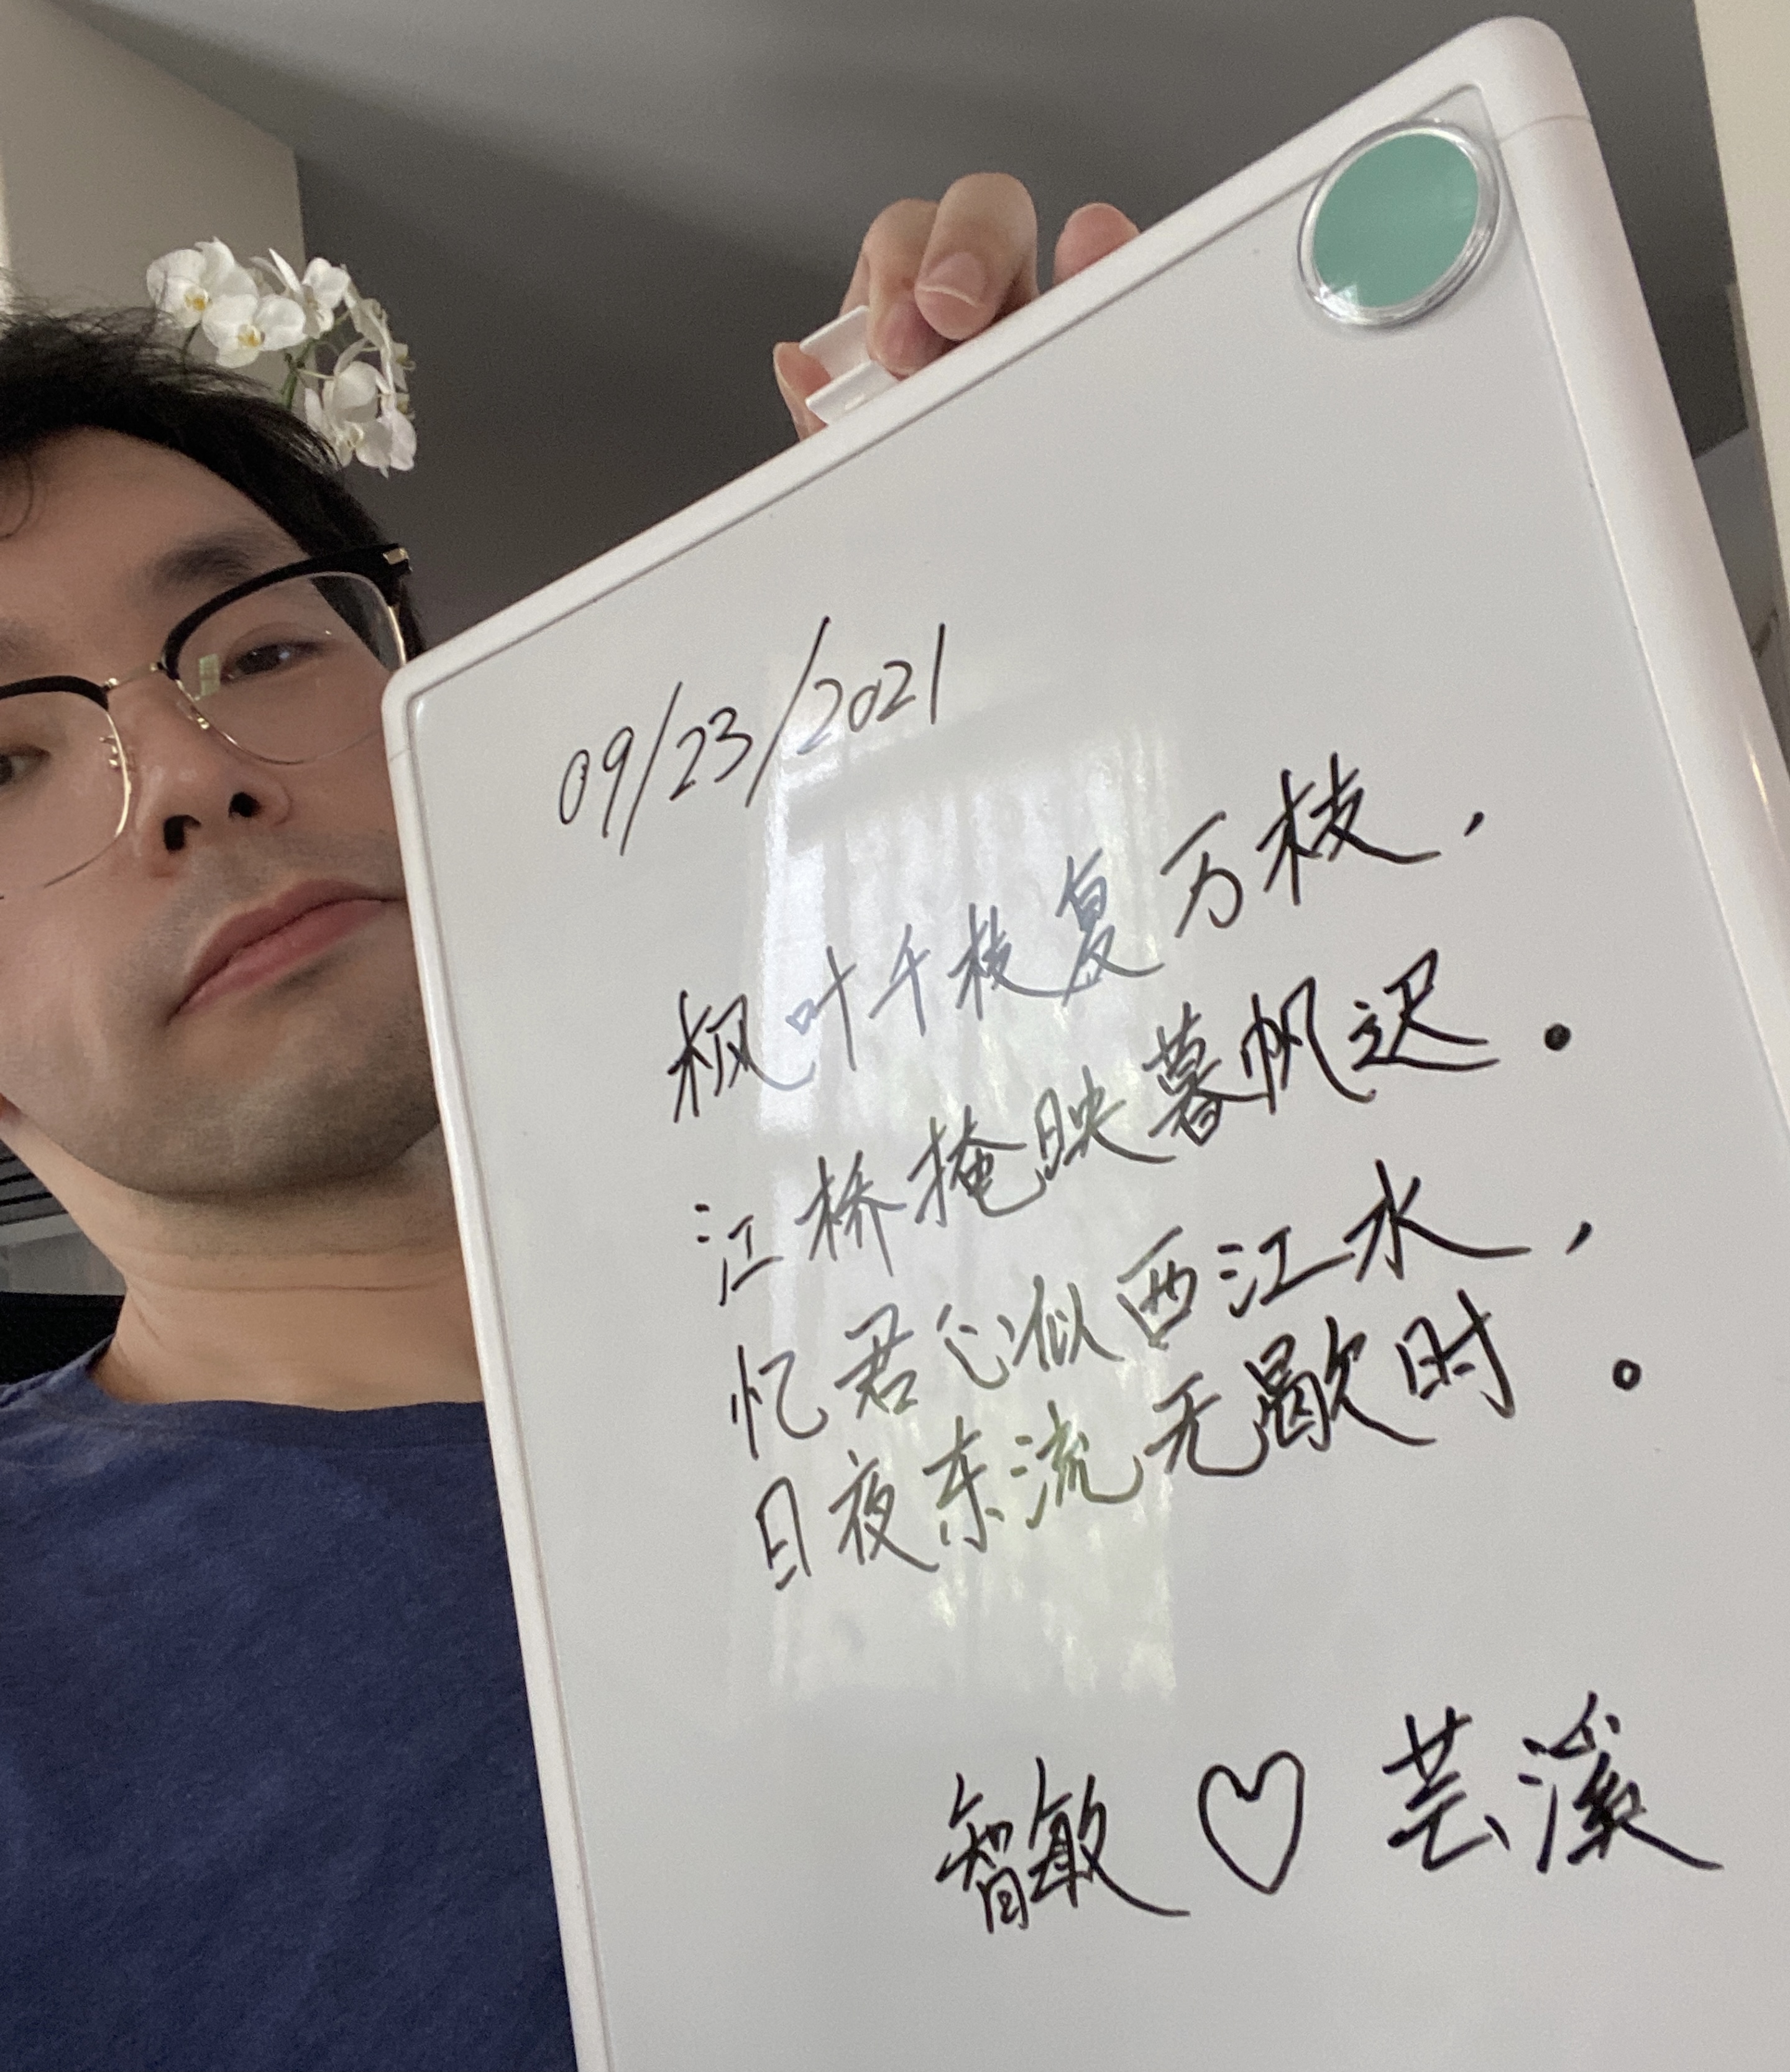 09/23/2021
枫叶千枝复万枝，
江桥掩映暮帆迟。
忆君心似西江水，
日夜东流无歇时。
智敏♡芸溪